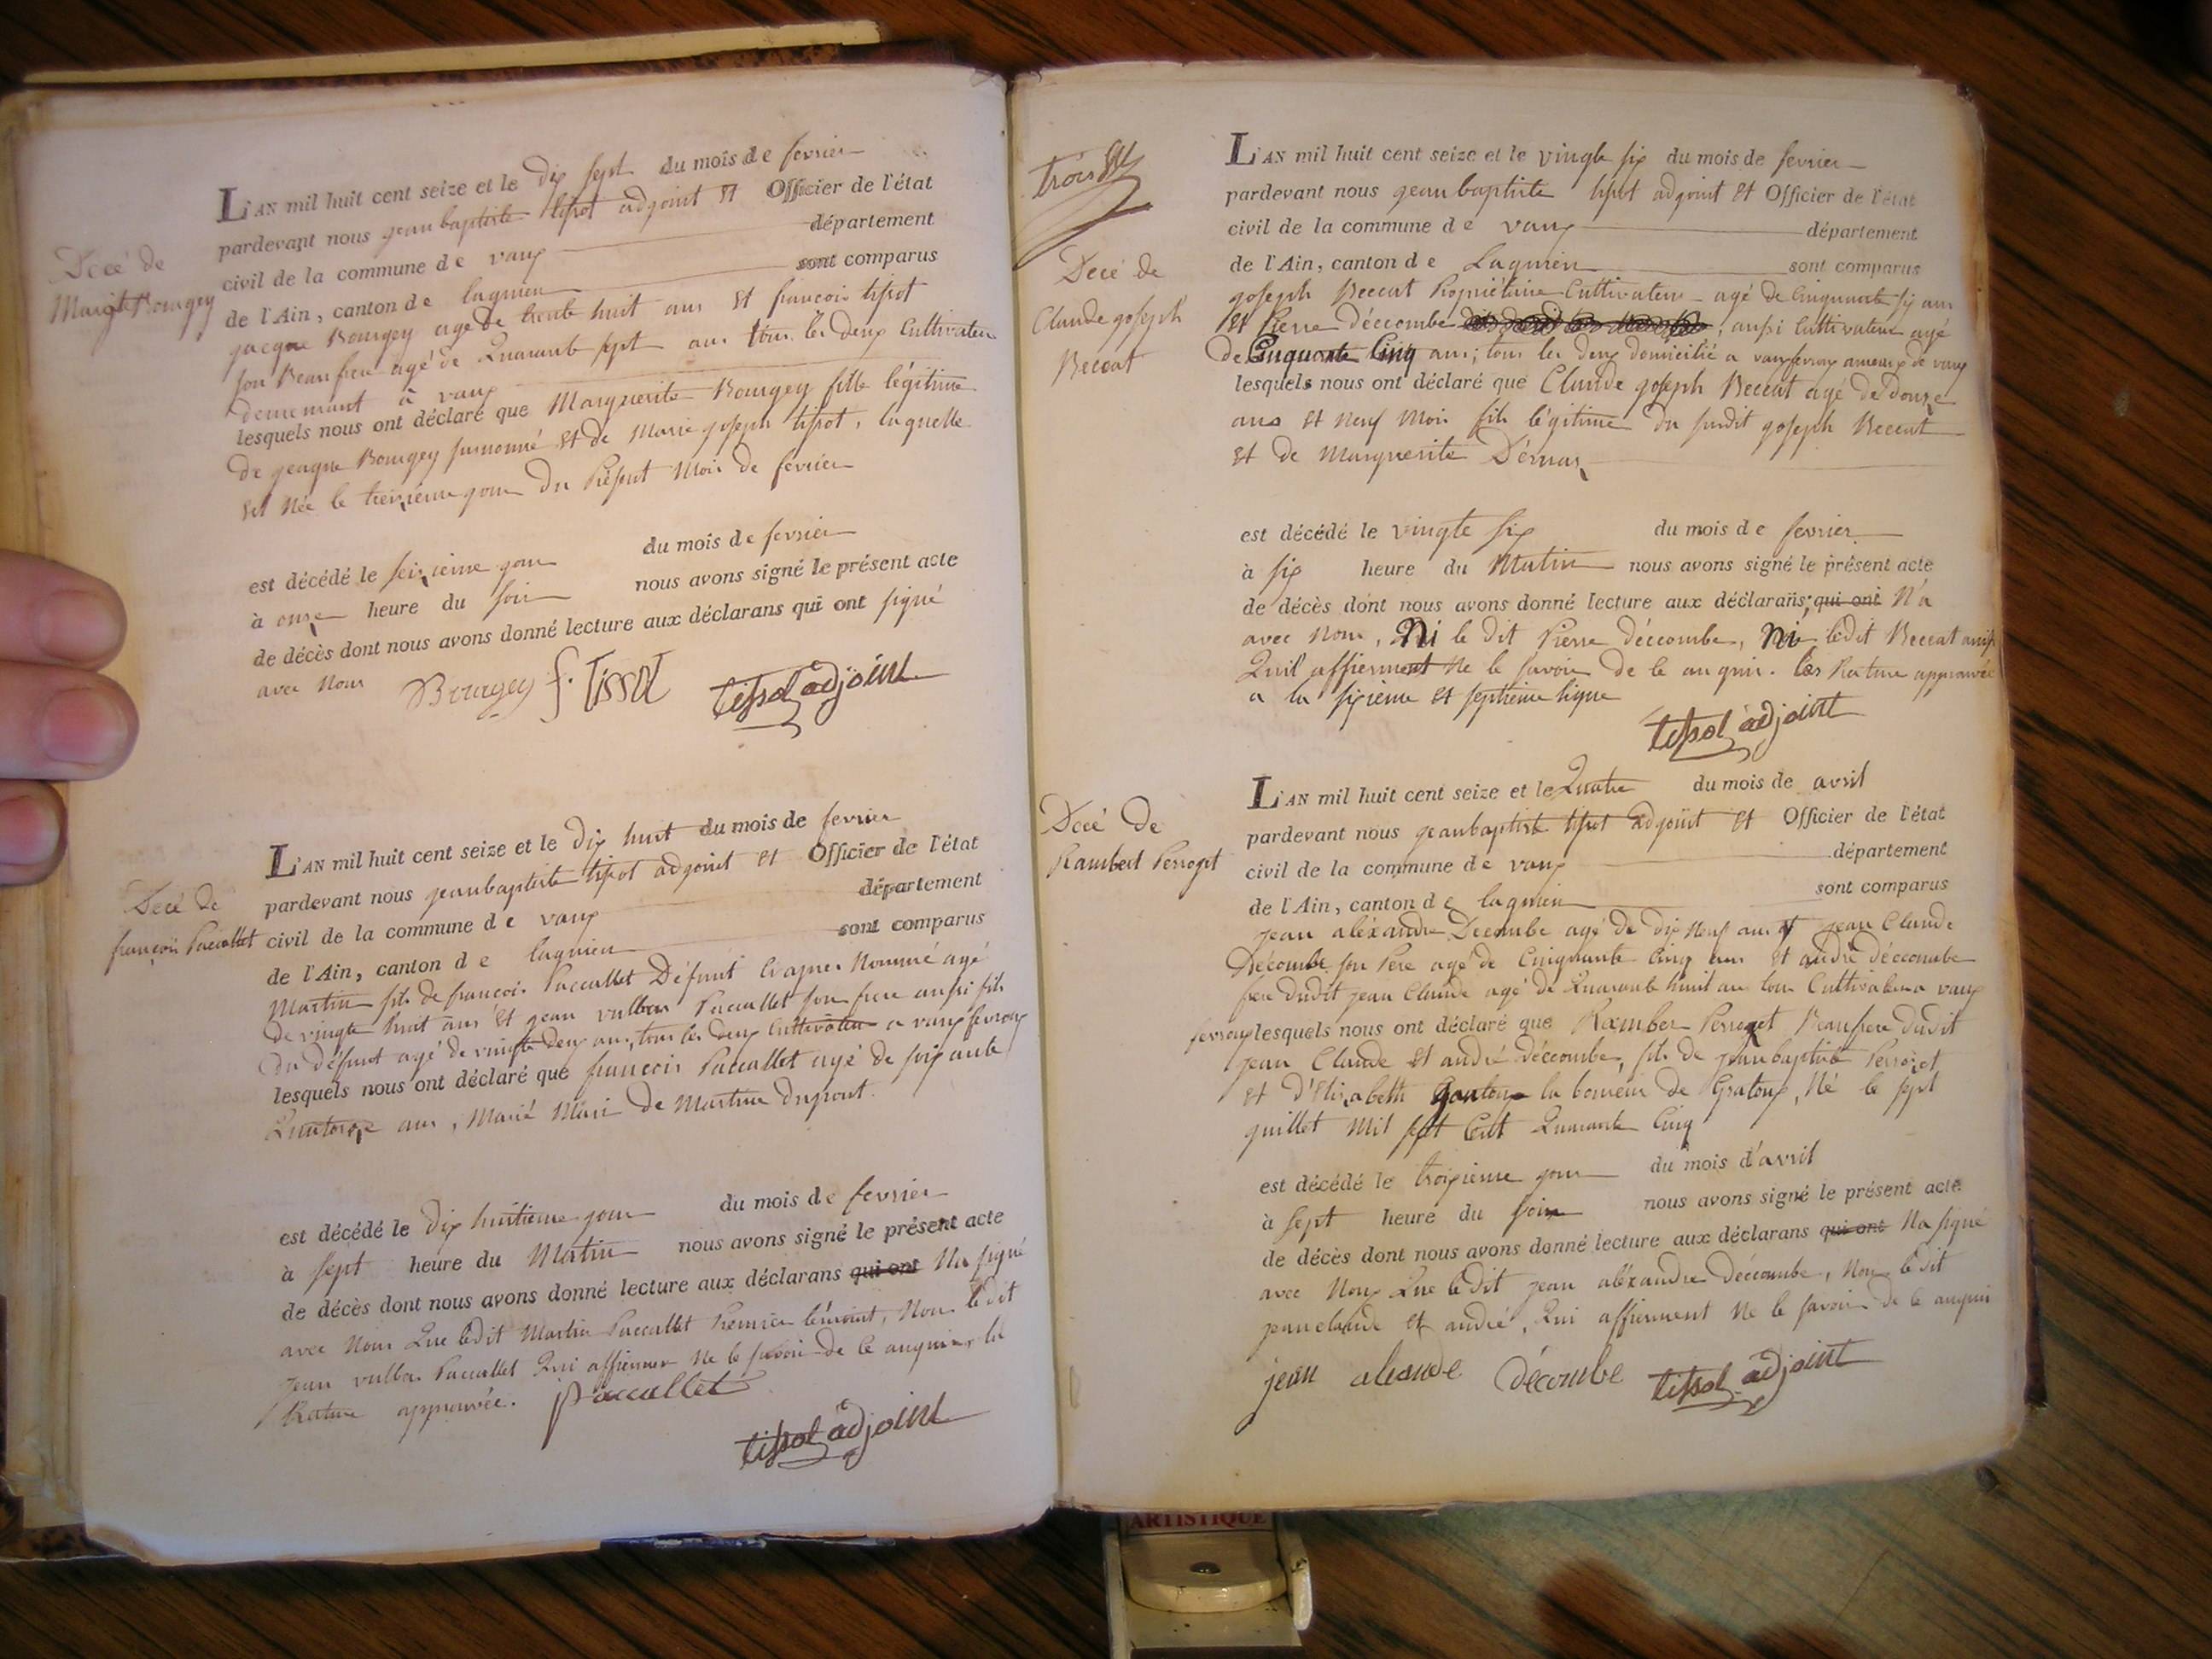 Decé de
Margte Bourgey
L'AN mil huit cent seize et le dix sept du mois de fevrier
pardevant nous jean baptiste tissot adjoint et Officier de l'état
civil de la commune de vaux département
de l'Ain, canton de lagnieu sont comparus
jacque Bourgey agé de trente huit ans et francois tissot
son Beaufrere agé de Quarante sept ans tous les deux Cultivateur
demeurant à vaux
lesquels nous ont déclaré que Marguerite Bourgey fille légitime
de jeaque Bourgey surnomé et de Marie joseph tissot, laquelle
est Née le treizieme jour du Présent Mois de fevrier
est décédé le seizieme jour du mois de fevrier
à onze heure du soir nous avons signé le présent acte
de décès dont nous avons donné lecture aux déclarans qui ont signé
avec Nous Bourgey f. Tissot tissot adjoint
Decé de
francois Paccallet
L'AN mil huit cent seize et le dix huit du mois de fevrier
pardevant nous jeanbaptiste tissot adjoint et Officier de l'état
civil de la commune de vaux département
de l'Ain, canton de lagnieu sont comparus
Martin fils de francois Paccallet Défunt Nommé agé
de vingte huit ans et jean vulbas Paccallet son frere aussi fils
du défunt agé de vingte deux ans, tous les deux Cultivateur a vaux fevroux
lesquels nous ont déclaré que francois Paccallet agé de soixante
Quatorze ans, Marié Mari de Martine dupont.
est décédé le dix huitieme jour du mois de fevrier
à sept heure du Matin nous avons signé le présent acte
de décès dont nous avons donné lecture aux déclarans qui ont Na signé
avec Nous Que ledit Martin Paccallet Premier témoint, Non ledit
jean vulbas Paccallet Qui affiermer Ne le savoir de ce anquir, la
Rature approuvée. Paccallet
tissot adjoint
trois
Decé de
Claude joseph
Beccat
L'AN mil huit cent seize et le vingte six du mois de fevrier
pardevant nous jeanbaptiste tissot adjoint et Officier de l'état
civil de la commune de vaux département
de l'Ain, canton de Lagnieu sont comparus
joseph Beccat Propriétaire Cultivateur agé de Cinquante six ans
et Pierre déccombe aussi Cultivateur agé
de Cinquante Cinq ans; tous les deux domicilié a vaux fevroux ameaux de vaux
lesquels nous ont déclaré que Claude joseph Beccat agé de douze
ans et Neuf Mois fils légitime du susdit joseph Beccat
et de Marguerite Dérnas
est décédé le vingte six du mois de fevrier
à six heure du Matin nous avons signé le présent acte
de décès dont nous avons donné lecture aux déclarans; qui ont N'a
avec Nous, Ni le dit Pierre déccombe, Ni ledit Beccat
Quil affierment Ne le savoir de ce anquir. les Rature approuvée
a la sixieme et septieme ligne
tissot adjoint
Decé de
Rambert Perroget
L'AN mil huit cent seize et le Quatre du mois de avril
pardevant nous jeanbaptiste tissot adjoint et Officier de l'état
civil de la commune de vaux département
de l'Ain, canton de lagnieu sont comparus
jean aléxandre Decombe agé de dix Neuf ans et jean Claude
Décombe son Pere agé de Cinquante Cinq ans et andré déccombe
frere dudit jean Claude agé de Quarante huit ans tous Cultivateur a vaux
fevroux lesquels nous ont déclaré que Ramber Perroget Beaufrere dudit
jean Claude et andré déccombe, fils de jeanbaptiste Perroget
et d'Elisabeth la bouveur de Gratoux, Né le sept
juillet Mil sept Cent Quarante Cinq
est décédé le troisieme jour du mois d'avril
à sept heure du soir nous avons signé le présent acte
de décès dont nous avons donné lecture aux déclarans qui ont Na signé
avec Nous Que ledit jean aléxandre Deccombe, Non ledit
jean claude et andré, Qui affierment Ne le savoir de ce anquir
jean alexande décombe tissot adjoint
ARTISTIQUE